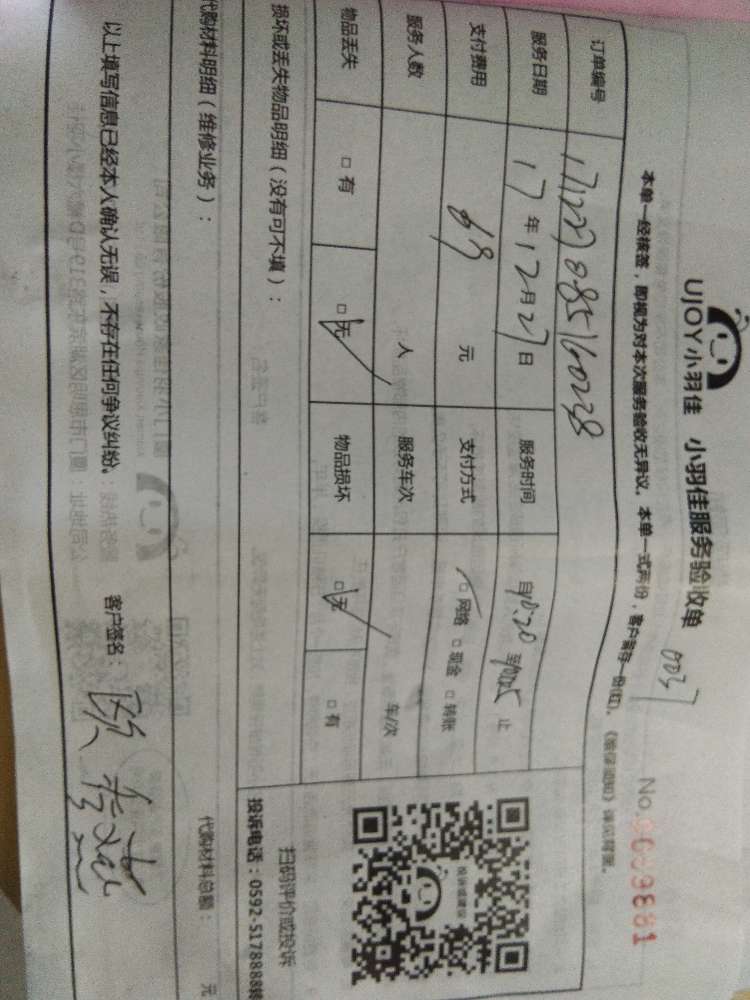 UJOY小羽佳 小羽佳服务验收单
0037
No. 0009881
本单一经核签，即视为对本次服务验收无异议。本单一式两份，客户留存一份(红)。《验保须知》详见背面。
订单编号 171227085160228
服务日期 17年12月27日 服务时间 自 至 止
支付费用 69 元 支付方式 □网络 □现金 □转账
服务人数 人 服务车次 车/次
物品丢失 □有 □无 物品损坏 □无 □有
损坏或丢失物品明细（没有可不填）：
扫码评价或投诉
投诉电话：0592-5178888转
代购材料明细（维修业务）： 代购材料总额： 元
以上填写信息已经本人确认无误，不存在任何争议纠纷。 客户签名：